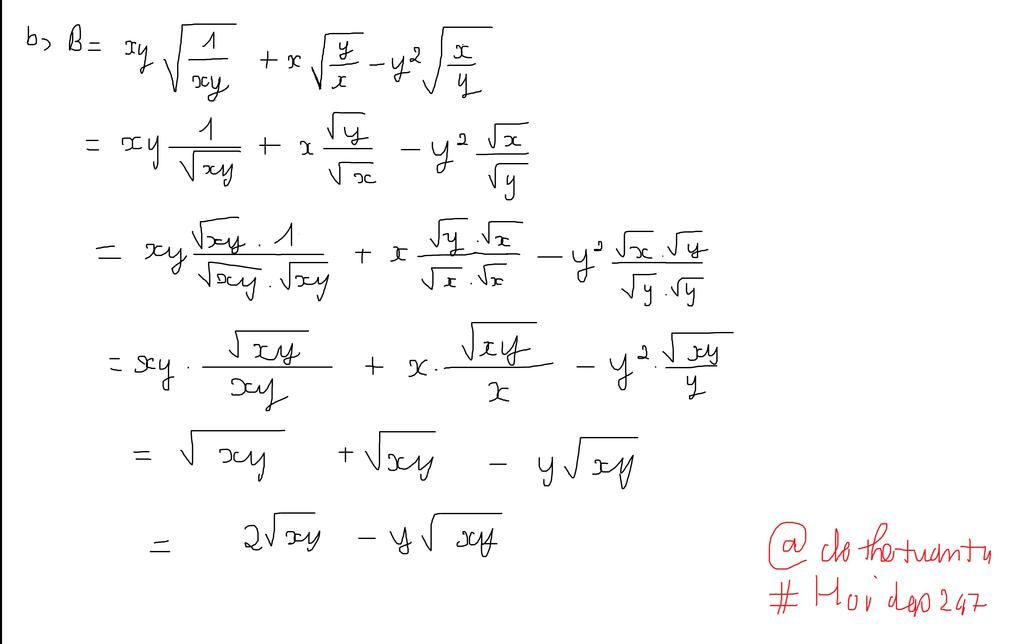 b, B = xy√(1/xy) + x√(y/x) − y²√(x/y)
= xy 1/√xy + x √y/√x − y² √x/√y
= xy (√xy . 1)/(√xy . √xy) + x (√y . √x)/(√x . √x) − y² (√x . √y)/(√y . √y)
= xy . √xy/xy + x . √xy/x − y² . √xy/y
= √xy + √xy − y√xy
= 2√xy − y√xy
@dothetuantu
# Hoidap247